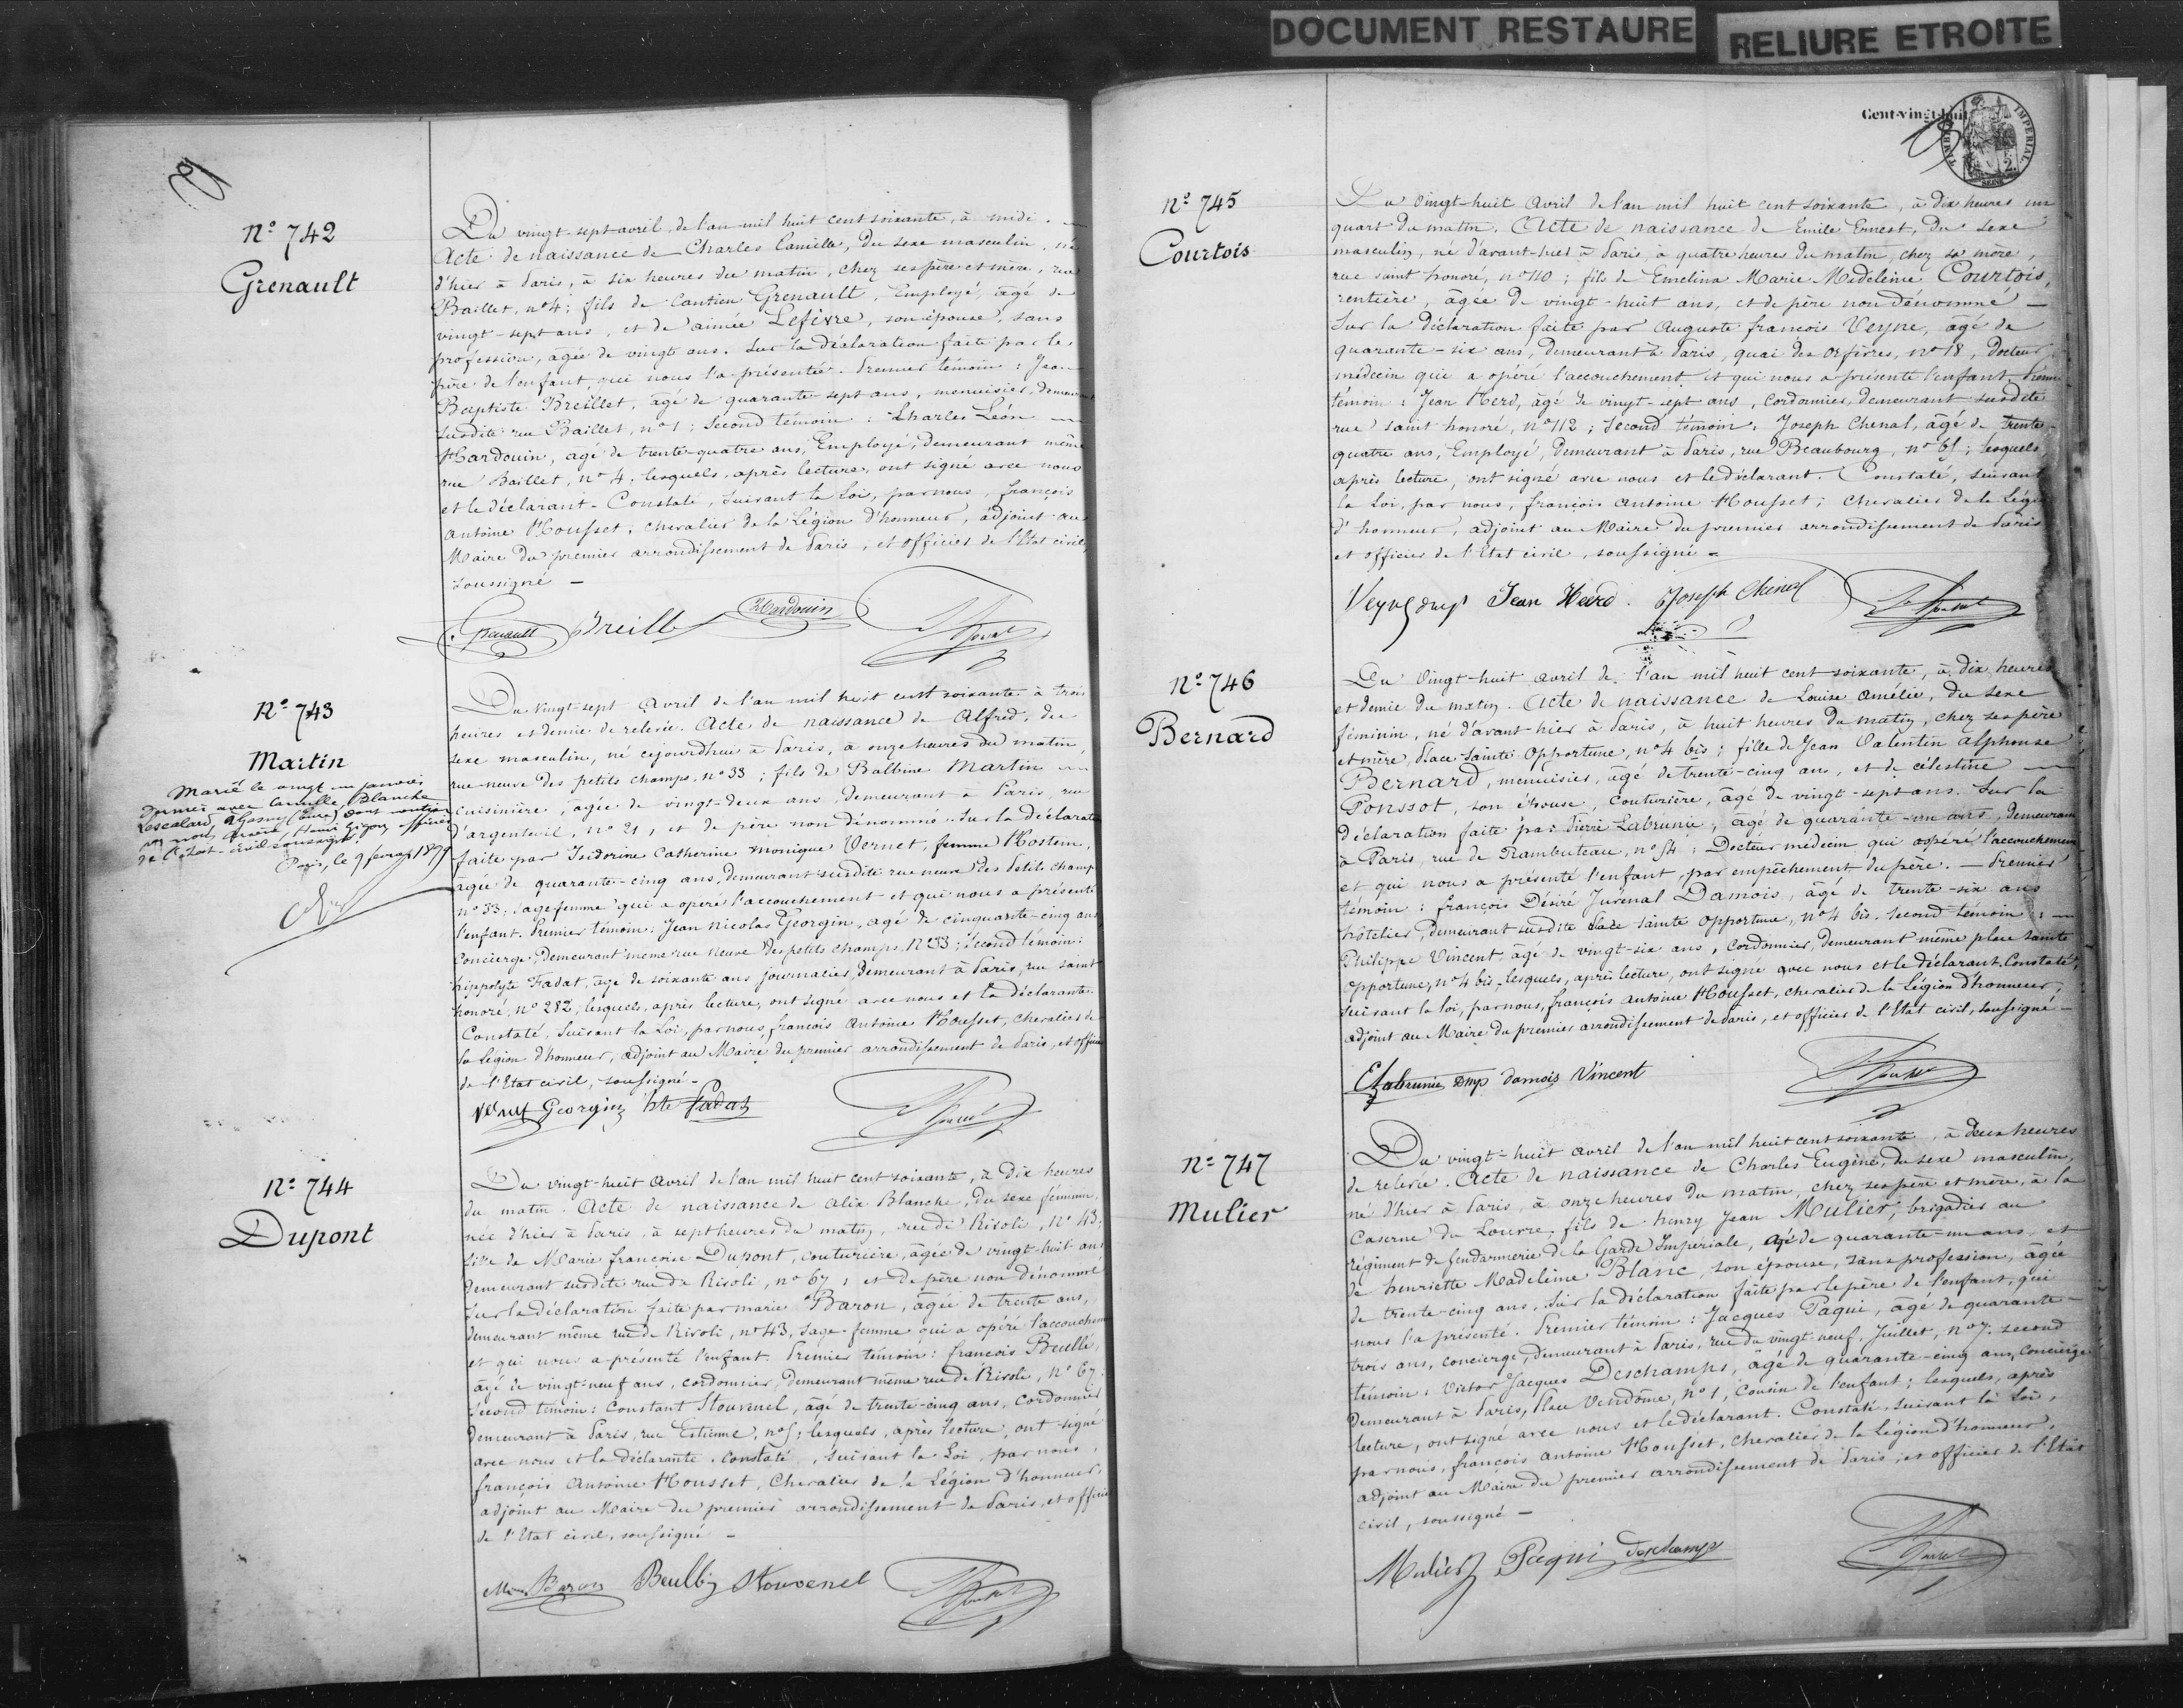 DOCUMENT RESTAURE
RELIURE ETROITE
N° 742
Grenault
Du vingt-sept avril de l'an mil huit cent soixante, à midi.
Acte de naissance de Charles Camille, du sexe masculin, né
d'hier à Paris, à six heures du matin, chez ses père et mère, rue
Baillet, n° 4; fils de Cantien Grenault, Employé, âgé de
vingt-sept ans, et de aimée Lefèvre, son épouse, sans
profession, âgée de vingt ans. Sur la déclaration faite par le
père de l'enfant, qui nous l'a présenté. Premier témoin: Jean
Baptiste Breillet, âgé de quarante sept ans, menuisier, demeurant
susdite rue Baillet, n° 1; Second témoin: Charles Léon
Hardouin, agé de trente-quatre ans, Employé, demeurant même
rue Baillet, n° 4, lesquels, après lecture, ont signé avec nous
et le déclarant. Constaté, suivant la Loi, par nous, françois
antoine Housset, chevalier de la Légion d'honneur, adjoint au
Maire du premier arrondissement de Paris, et officier de l'Etat civil,
soussigné -
Grenault Breillet Hardouin Housset
N° 743
Martin
Marié le vingt un janvier
dernier avec Camille, Blanche
Lescalard, à Gasny (Eure) dont mention
par nous, Henri Gigon officier
de l'état-civil soussigné.
Paris, le 9 février 189
Du vingt sept Avril de l'an mil huit cent soixante à trois
heures et demie de relevée. Acte de naissance de Alfred, du
sexe masculin, né cejourdhui à Paris, à onze heures du matin,
rue neuve des petits champs, n° 33; fils de Balbine Martin
cuisinière, agée de vingt-deux ans, demeurant à Paris, rue
d'argenteuil, n° 21, et de père non dénommé. Sur la déclaration
faite par Isidorine Catherine Monique Vernet, femme Hostem,
âgée de quarante-cinq ans, demeurant susdite rue neuve des Petits champs
n° 33; sagefemme qui a opéré l'accouchement et qui nous a présenté
l'enfant. Premier témoin: Jean Nicolas Georgin, agé de cinquante-cinq ans
Concierge, demeurant même rue neuve des petits champs, N° 33; Second témoin:
hippolyte Fadat, age de soixante ans journalier, demeurant à Paris, rue saint
honoré, n° 282, lesquels, après lecture, ont signé avec nous et la déclarante.
Constaté, Suivant la Loi, par nous, françois Antoine Housset, chevalier de
la Légion d'honneur, adjoint au Maire du premier arrondissement de Paris, et officier
de l'Etat civil, soussigné -
Vernet Georgin hte Fadat Housset
N° 744
Dupont
Du vingt-huit Avril de l'an mil huit cent soixante, à dix heures
du matin. Acte de naissance de alix Blanche, du sexe féminin,
née d'hier à Paris, à sept heures du matin, rue de Rivoli, N° 43,
fille de Marie françoise Dupont, couturière, âgée de vingt-huit ans
demeurant susdite rue de Rivoli, n° 67, et de père non dénommé
Sur la déclaration faite par marie Baron, âgée de trente ans,
demeurant même rue de Rivoli, n° 43, sage-femme qui a opéré l'accouchement
et qui nous a présenté l'enfant. Premier témoin: françois Beullé,
âgé de vingt-neuf ans, cordonnier, demeurant même rue de Rivoli, N° 67,
Second témoin: Constant Stouvenel, âgé de trente-cinq ans, cordonnier
demeurant à Paris, rue Estienne, n° 5; lesquels, après lecture, ont signé
avec nous et la déclarante. Constaté, suivant la Loi, par nous,
françois Antoine Housset, Chevalier de la Légion d'honneur,
adjoint au Maire du premier arrondissement de Paris, et officier
de l'Etat civil, soussigné -
Baron Beullé Stouvenel Housset
Cent-vingt-huit
TIMBRE IMPERIAL
2
SEINE
N° 745
Courtois
Du vingt-huit avril de l'an mil huit cent soixante, à dix heures un
quart du matin. Acte de naissance de Emile Ernest, du sexe
masculin, né d'avant-hier à Paris, à quatre heures du matin, chez sa mère,
rue saint honoré, n° 110; fils de Emelina Marie Madeleine Courtois,
rentière, âgée de vingt-huit ans, et de père non dénommé -
Sur la déclaration faite par Auguste françois Veyne, âgé de
quarante-six ans, demeurant à Paris, quai des orfèvres, n° 18, Docteur
médecin qui a opéré l'accouchement et qui nous a présenté l'enfant. Premier
témoin: Jean Herd, âgé de vingt-sept ans, Cordonnier, demeurant susdite
rue saint honoré, n° 112; Second témoin: Joseph Chenal, âgé de trente-
quatre ans, Employé, demeurant à Paris, rue Beaubourg, n° 65; lesquels
après lecture, ont signé avec nous et le déclarant. Constaté, suivant
la Loi, par nous, françois Antoine Housset; Chevalier de la Légion
d'honneur, adjoint au Maire du premier arrondissement de Paris
et officier de l'Etat civil, soussigné -
Veyne dmp Jean Herd. Joseph Chenal Housset
N° 746
Bernard
Du Vingt-huit avril de l'an mil huit cent soixante, à dix heures
et demie du matin. Acte de naissance de Louise Amélie, du sexe
féminin, né d'avant-hier à Paris, à huit heures du matin, chez ses père
et mère, place Sainte Opportune, n° 4 bis; fille de Jean Valentin alphonse
Bernard, menuisier, âgé de trente-cinq ans, et de célestine
Ponssot, son épouse, couturière, âgé de vingt-sept ans. Sur la
déclaration faite par Pierre Labrunie, âgé de quarante-un ans, demeurant
à Paris, rue de Rambuteau, n° 54; Docteur médecin qui a opéré l'accouchement
et qui nous a présenté l'enfant, par empêchement du père. - Premier
témoin: françois Désiré Juvénal Damois, âgé de trente-six ans
hôtelier, demeurant susdite place Sainte Opportune, n° 4 bis. Second témoin:
Philippe Vincent âgé de vingt-six ans, cordonnier, demeurant même place Sainte
Opportune, n° 4 bis, lesquels, après lecture, ont signé avec nous et le déclarant. Constaté,
suivant la loi, par nous, françois Antoine Housset, chevalier de la Légion d'honneur,
adjoint au Maire du premier arrondissement de Paris, et officier de l'Etat civil, soussigné -
Labrunie Dmp damois Vincent Housset
N° 747
Mulier
Du vingt-huit avril de l'an mil huit cent soixante, à deux heures
de relevée. Acte de naissance de Charles Eugène, du sexe masculin,
né d'hier à Paris, à onze heures du matin, chez ses père et mère, à la
Caserne du Louvre; fils de henry Jean Mulier, brigadier au
régiment de Gendarmerie de la Garde Impériale, agé de quarante-un ans, et
de henriette Madeleine Blanc, son épouse, sans profession, âgée
de trente-cinq ans. Sur la déclaration faite par le père de l'enfant, qui
nous l'a présenté. Premier témoin: Jacques Paqui, âgé de quarante-
trois ans, concierge, demeurant à Paris, rue du vingt-neuf Juillet, n° 7. second
témoin: Victor Jacques Deschamps, âgé de quarante-cinq ans, Concierge
demeurant à Paris, Place Vendôme, n° 1, Cousin de l'enfant; lesquels, après
lecture, ont signé avec nous et le déclarant. Constaté, suivant la Loi,
par nous, françois Antoine Housset, chevalier de la Légion d'honneur,
adjoint au Maire du premier arrondissement de Paris, et officier de l'Etat
civil, soussigné -
Mulier Paqui Deschamps Housset